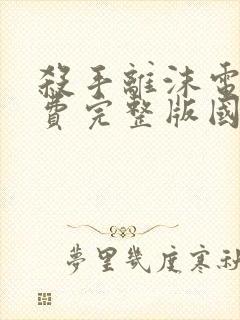 殺手離沫電
費完整版國
夢里幾度寒秋